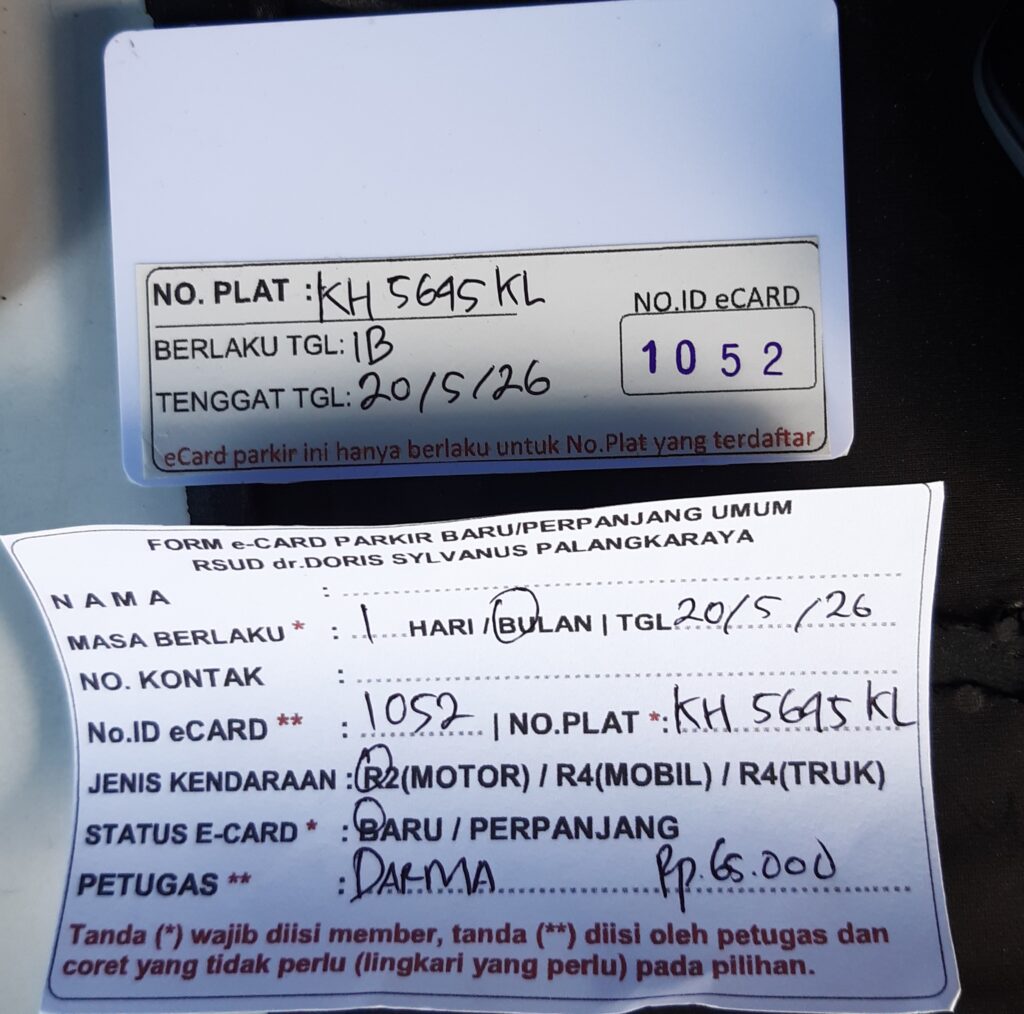 NO. PLAT : KH 5695 KL
BERLAKU TGL: 1B
TENGGAT TGL: 20/5/26
NO.ID eCARD
1052
eCard parkir ini hanya berlaku untuk No.Plat yang terdaftar
FORM e-CARD PARKIR BARU/PERPANJANG UMUM
RSUD dr.DORIS SYLVANUS PALANGKARAYA
NAMA :
MASA BERLAKU * : 1 HARI / BULAN | TGL 20/5/26
NO. KONTAK :
No.ID eCARD ** : 1052 | NO.PLAT *: KH 5695 KL
JENIS KENDARAAN : R2(MOTOR) / R4(MOBIL) / R4(TRUK)
STATUS E-CARD * : BARU / PERPANJANG
PETUGAS ** : DARMA Rp.65.000
Tanda (*) wajib diisi member, tanda (**) diisi oleh petugas dan
coret yang tidak perlu (lingkari yang perlu) pada pilihan.